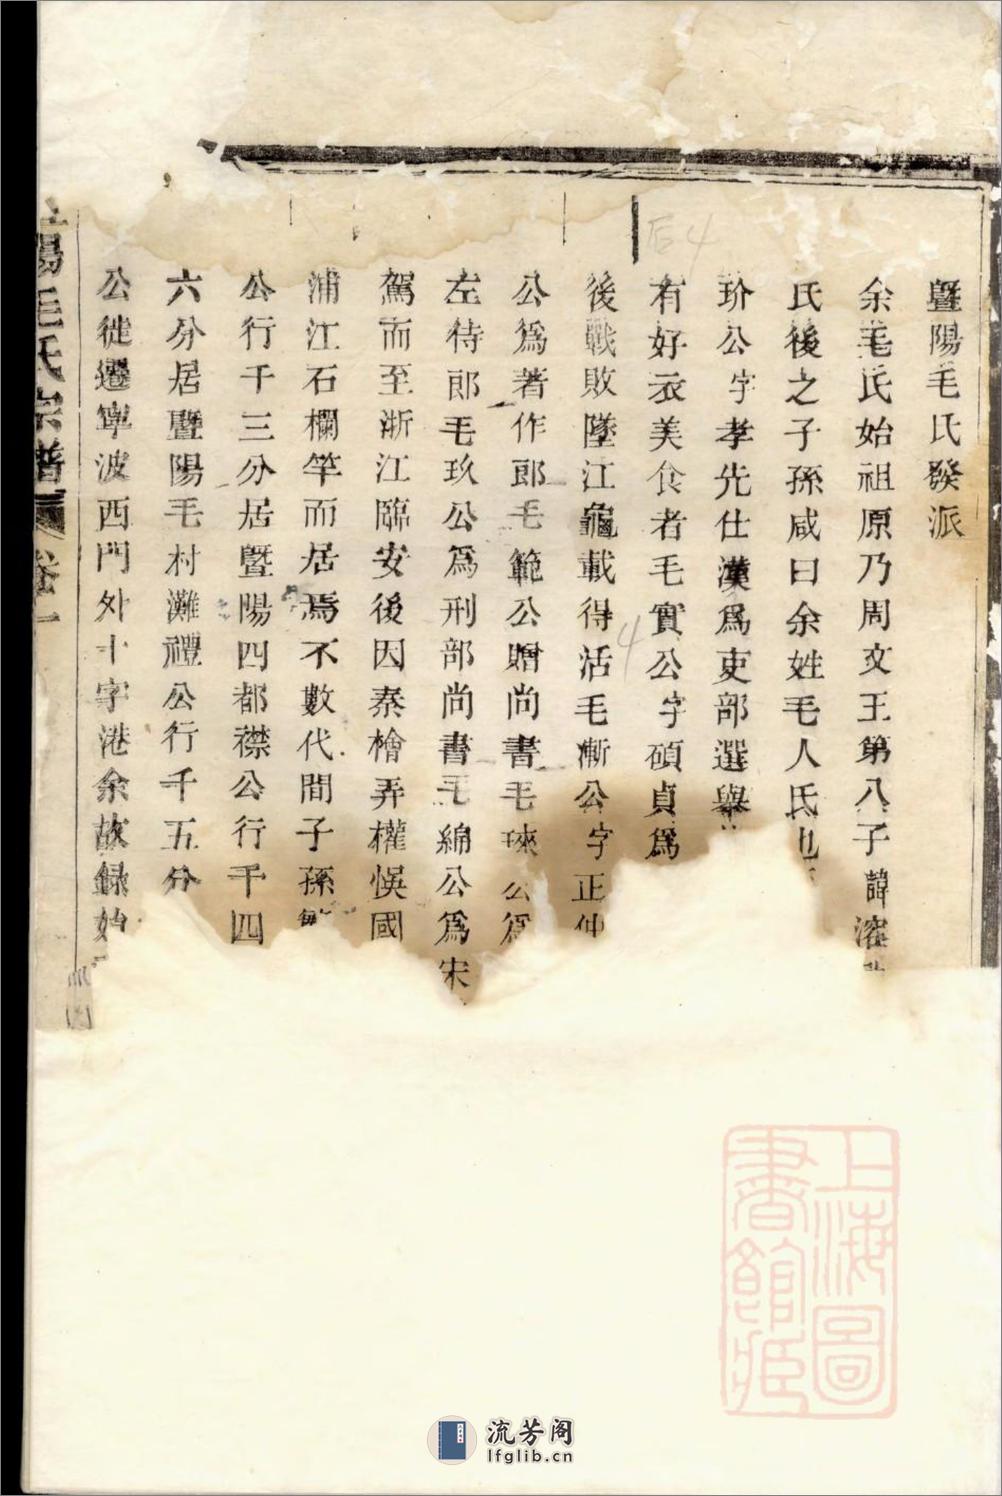 暨陽毛氏發派
余毛氏始祖原乃周文王第八子諱
氏後之子孫咸曰余姓毛人氏也
玠公字孝先仕漢爲吏部選舉
有好衣美食者毛實公字碩貞爲
後戰敗墜江龜載得活毛漸公字正仲
公爲著作郎毛範公贈尚書毛公爲
左待郎毛玖公爲刑部尚書毛綿公爲宋
駕而至浙江臨安後因秦檜弄權悞國
浦江石欄竿而居焉不數代間子孫
公行千三分居暨陽四都襟公行千四
六分居暨陽毛村灘禮公行千五分
公徙遷寧波西門外十字港余故録始
陽毛氏宗譜 卷一
后4
4
上海圖書館藏
流芳阁
lfglib.cn